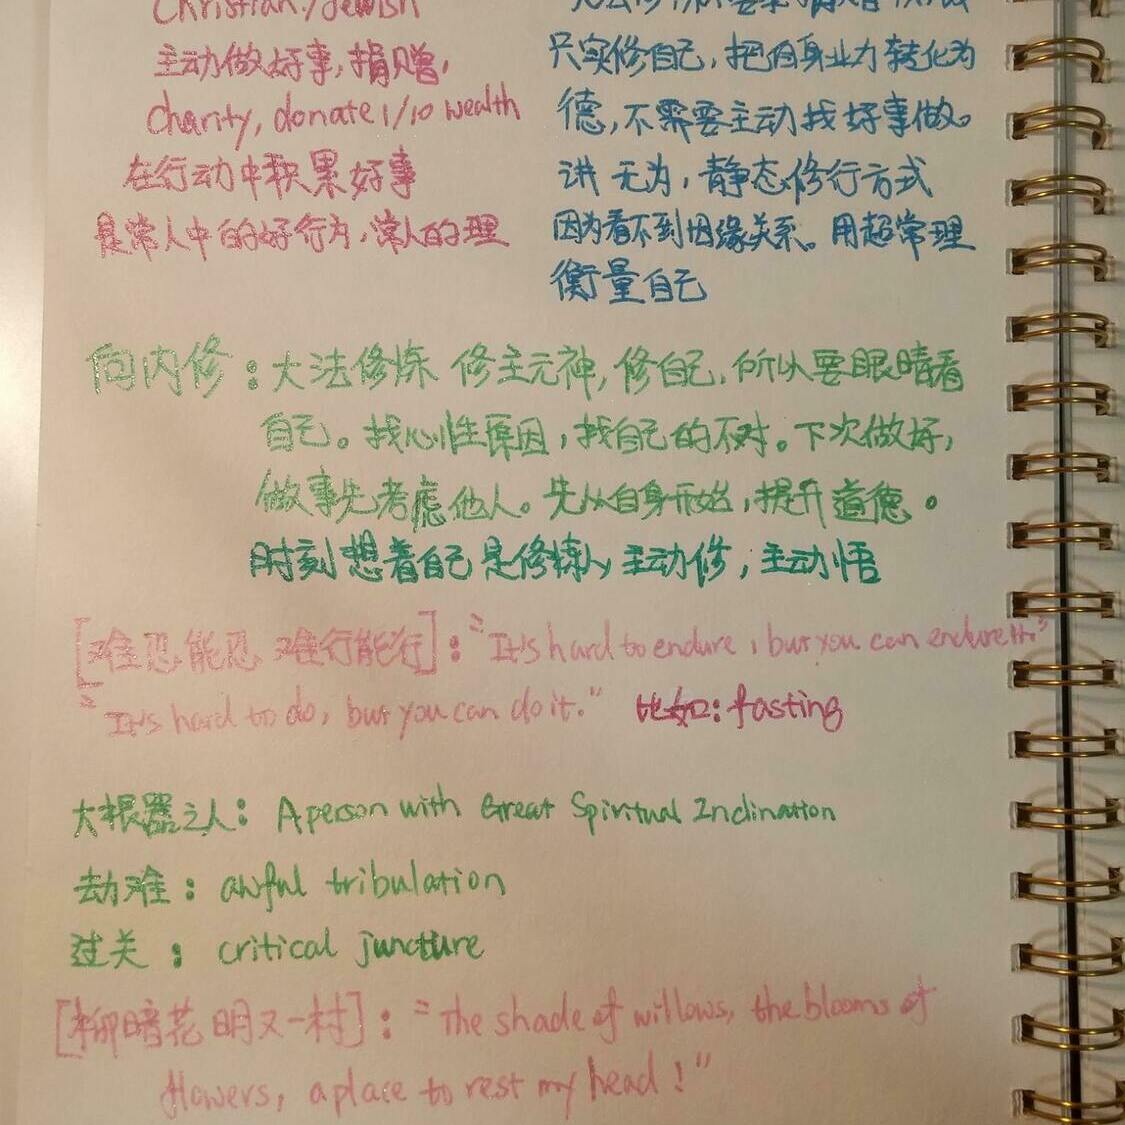 Christian/Jewish
主动做好事,捐赠,
charity, donate 1/10 wealth
在行动中积累好事
是常人中的好行为,常人的理
只实修自己,把自身业力转化为
德,不需要主动找好事做。
讲无为,静态修行方式
因为看不到因缘关系。用超常理
衡量自己
向内修:大法修炼 修主元神,修自己,所以要眼睛看
自己。找心性原因,找自己的不对。下次做好,
做事先考虑他人。先从自身开始,提升道德。
时刻想着自己是修炼人,主动修,主动悟
[难忍能忍 难行能行]:"It's hard to endure, but you can endure it."
"It's hard to do, but you can do it." 比如:fasting
大根器之人:A person with Great Spiritual Inclination
劫难:awful tribulation
过关:critical juncture
[柳暗花明又一村]:"the shade of willows, the blooms of
flowers, a place to rest my head!"